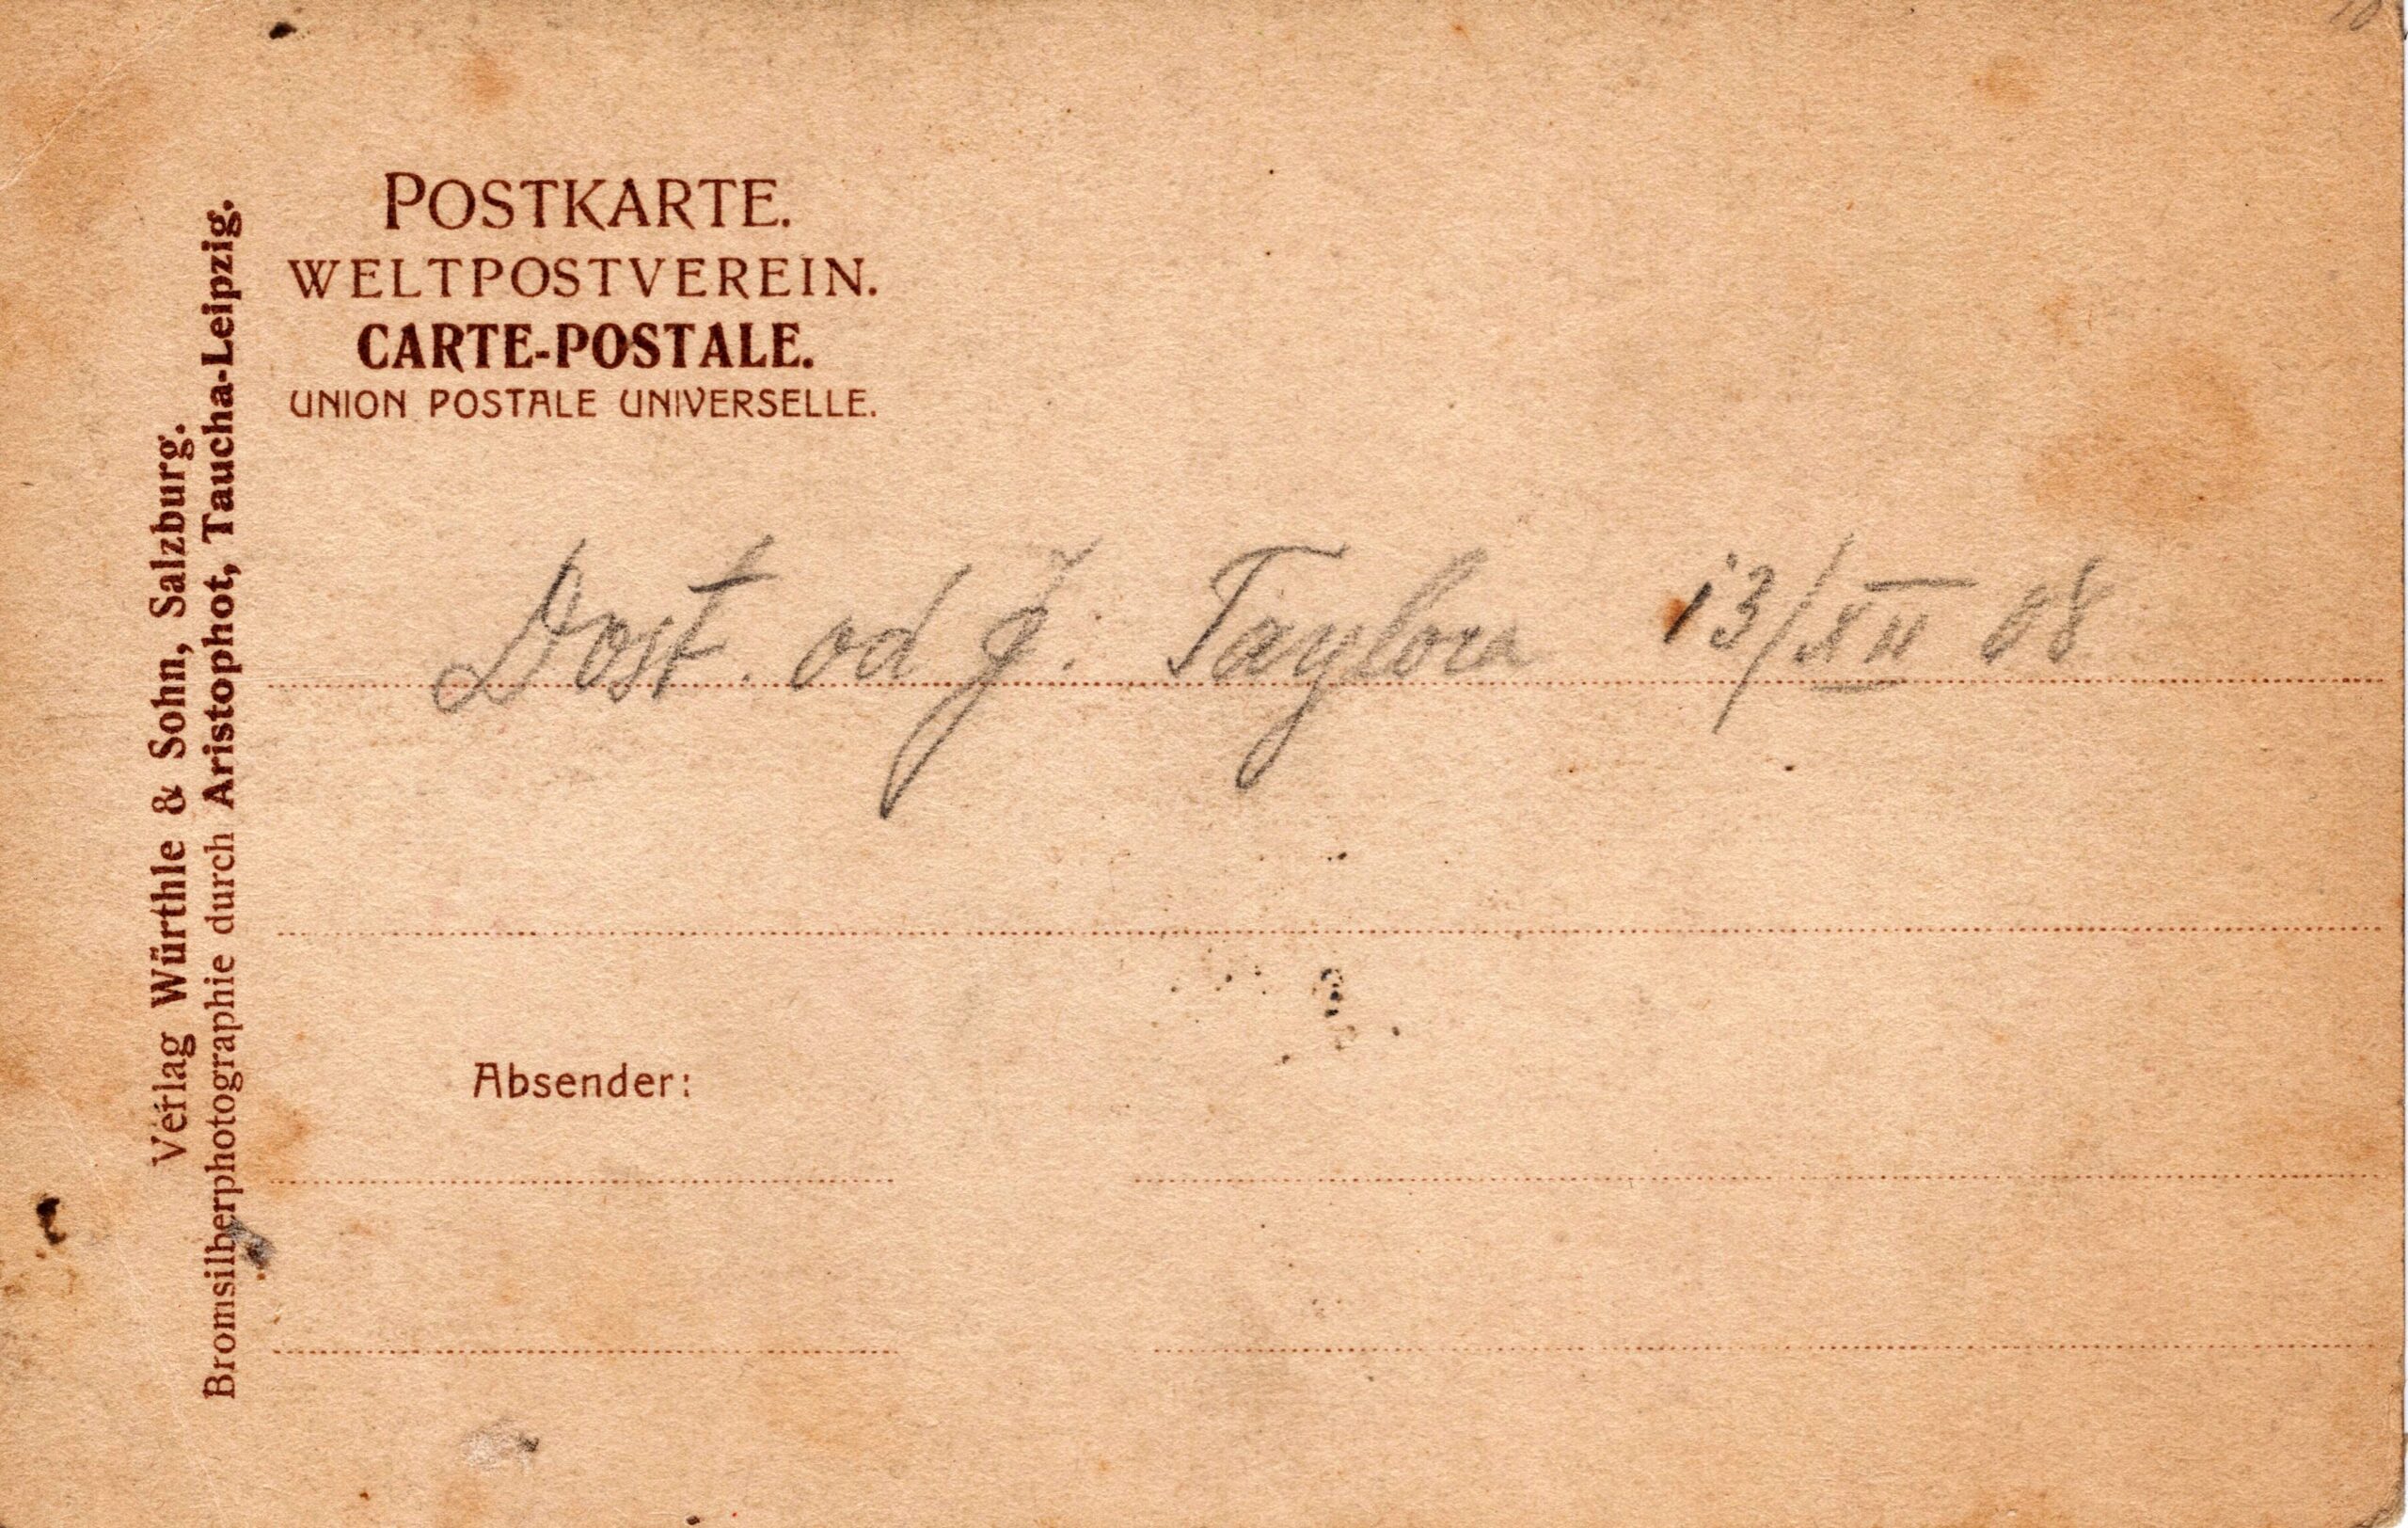 POSTKARTE.
WELTPOSTVEREIN.
CARTE-POSTALE.
UNION POSTALE UNIVERSELLE.
Verlag Würthle & Sohn, Salzburg.
Bromsilberphotographie durch Aristophot, Taucha-Leipzig.
Dost. od J. Taylora 13/XII 08
Absender: